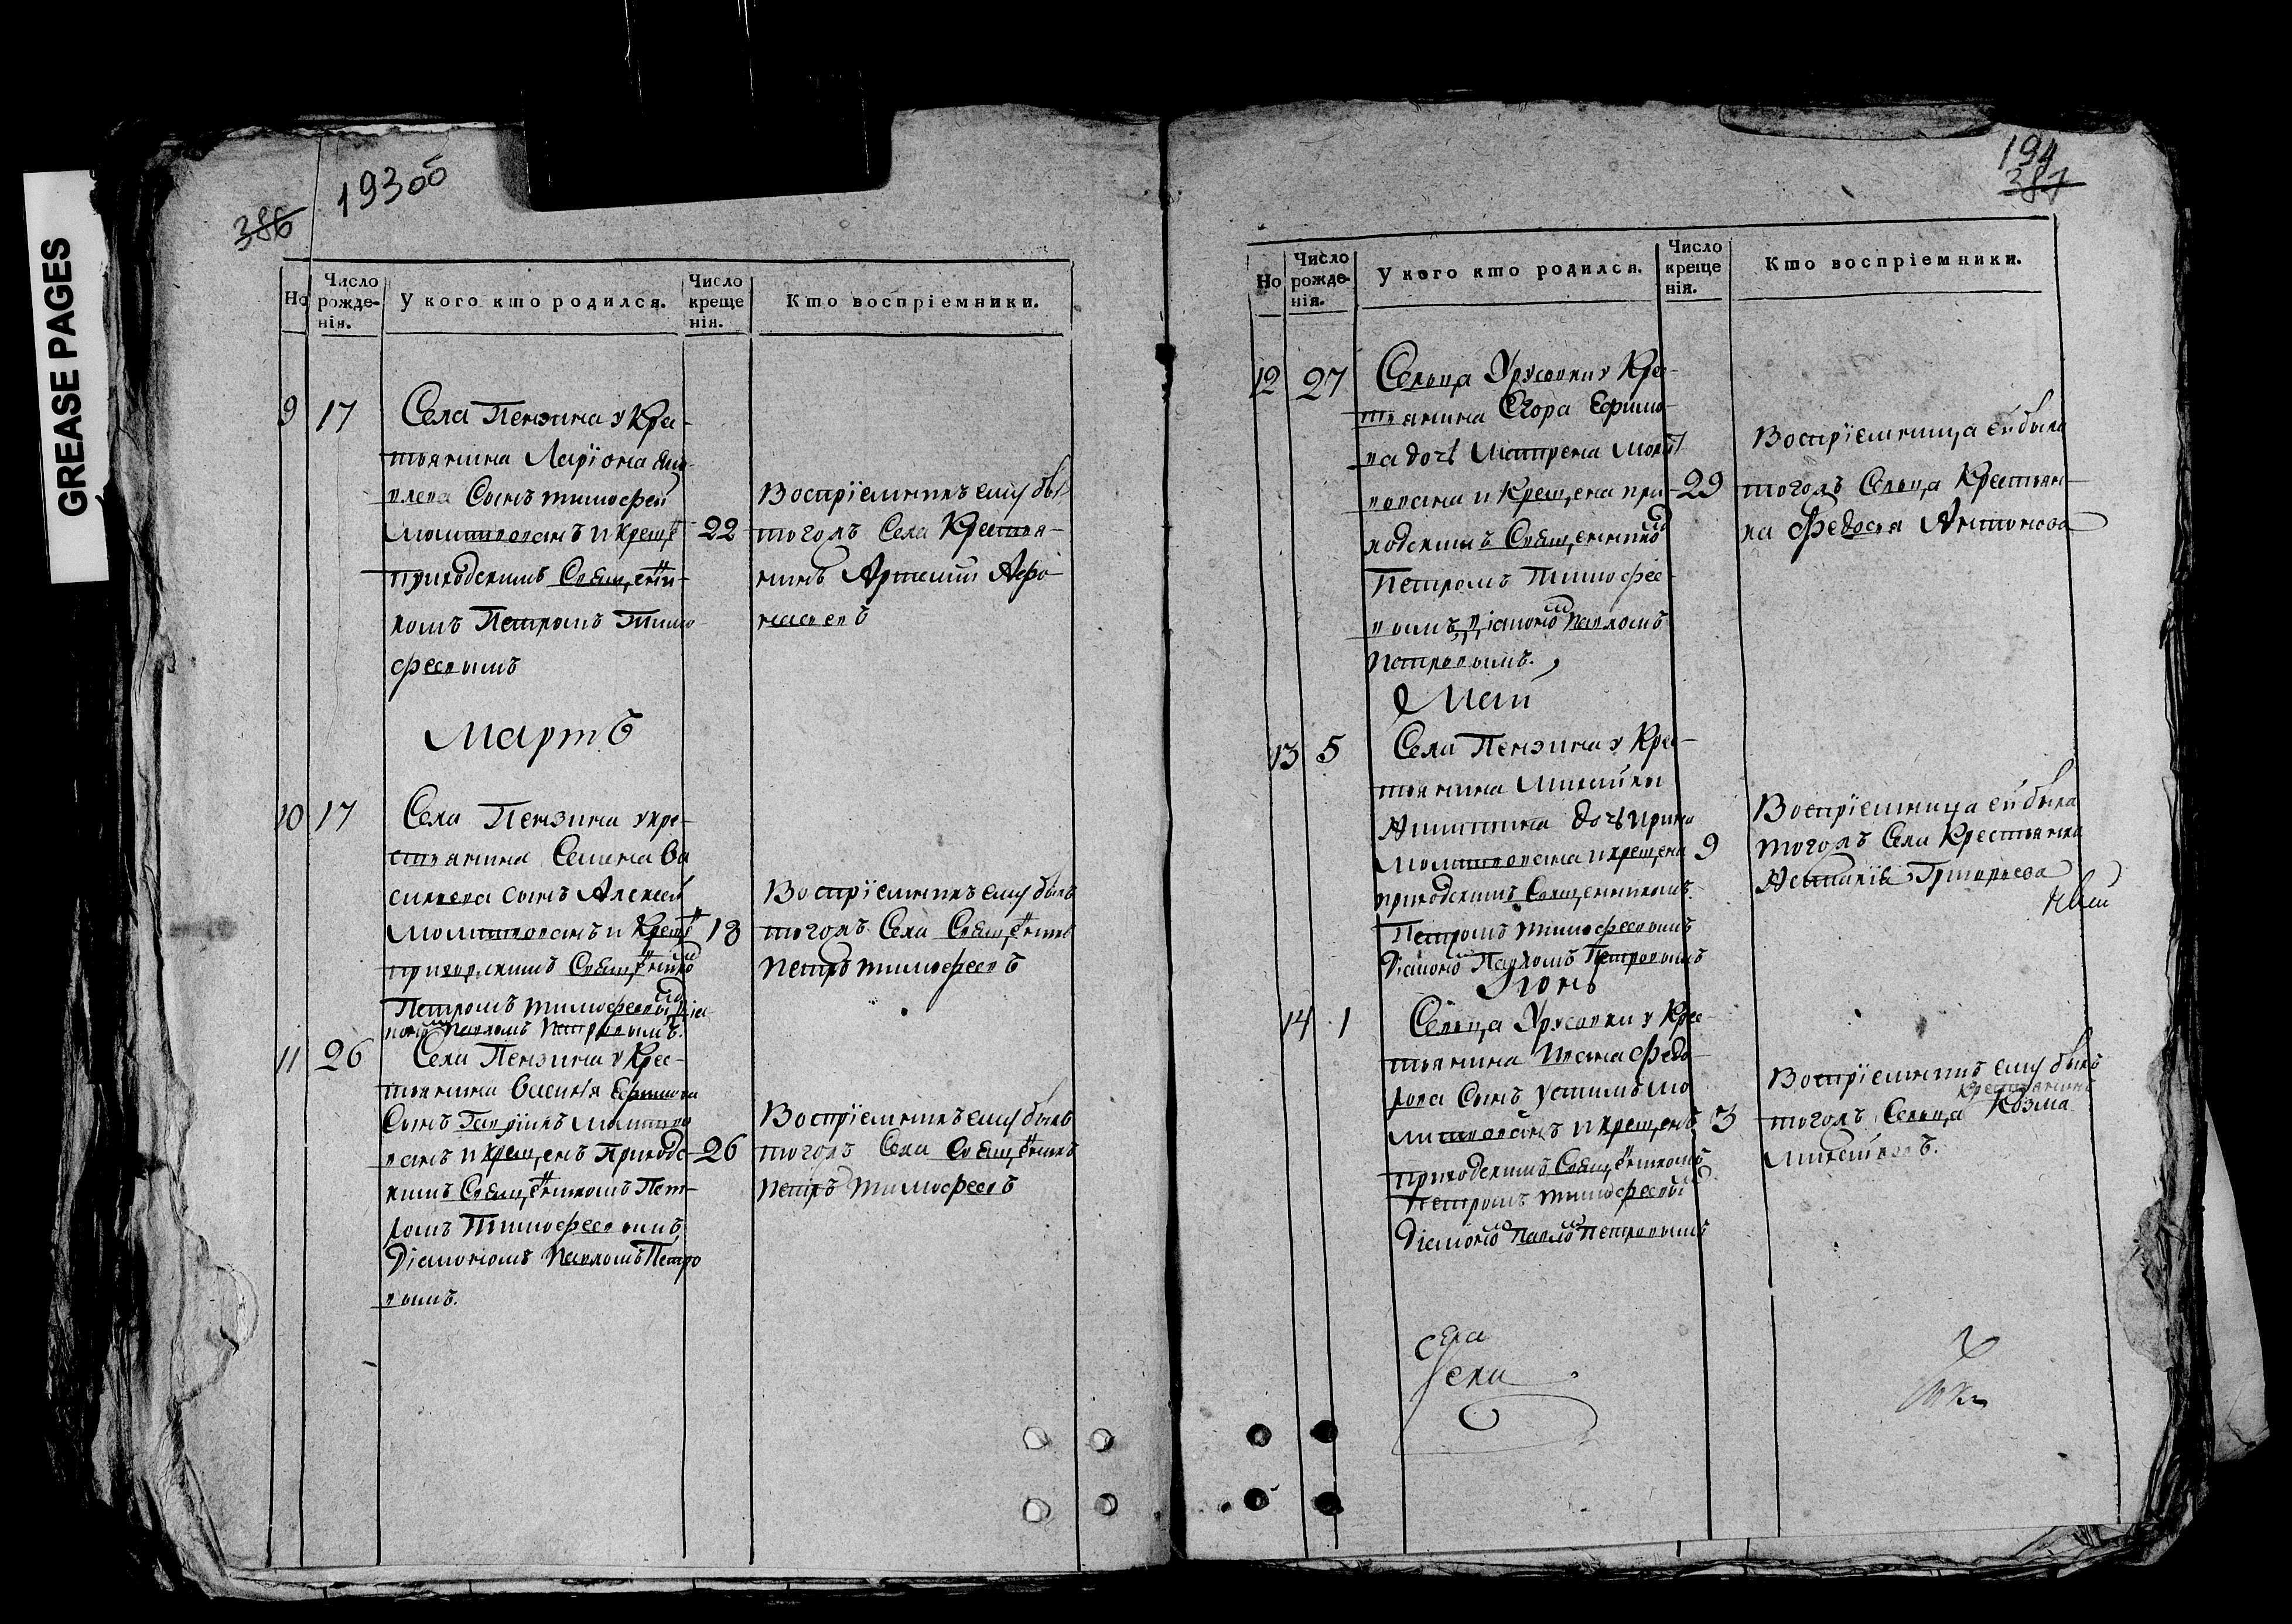 GREASE PAGES
386
193об
Но
Число рожденія.
У кого кто родился.
Число крещенія.
Кто воспріемники.
9 17 Села Пензина у Крес-
тьянина Ларіона
Сынъ тимофей
Молитвованъ и Крещенъ 22
приходскимъ Священни-
комъ Петромъ Тимо-
феевымъ
Воспріемникъ ему бы
тогожъ Села Крестья-
нинъ Артемий Афо
насьевъ
Мартъ
10 17 Села Пензина у кре-
стьянина Семена Ва
сильева сынъ Алексей
Молитвованъ и Крещенъ 18
Священнико
Петромъ тимофеевы діа
коно павломъ петровымъ.
Воспріемникъ ему былъ
тогожъ Села Священникъ
петръ тимофеевъ
11 26 Села Пензина у Крес-
тьянина Василья Ефимова
Сынъ Гаврiилъ Молитво
ванъ и крещенъ Приходс- 26
кимъ Священникомъ Пет-
ромъ Тимофеевымъ
Діакономъ павломъ Петро
вымъ.
Воспріемникъ ему былъ
тогожъ Села Священникъ
петръ тимофеевъ
194
387
Но
Число рожденія.
У кого кто родился.
Число крещенія.
Кто воспріемники.
12 27 Сельца Урусовки у Крес-
тьянина Егора Ефимо-
ва дочь Матрена Молит
вована и Крещена при- 29
ходскимъ Священнико
Петромъ Тимофее-
вымъ, діаконо павломъ
петровымъ.
Воспріемница ей была
тогожъ Сельца Крестьян-
ка Федосья Антонова
Маiй
13 5 Села Пензина у Крес-
тьянина Никиты
дочь ирина
Молитвована и крещена 9
приходскимъ Священникомъ
Петромъ тимофеевымъ
Діаконо Павломъ Петровымъ
Воспріемница ей была
тогожъ Села Крестьянка
Григорьева
Іюнь
14 1 Сельца Урусовки у Крес-
тьянина Ивана федо-
рова Сынъ устинъ мо
литвованъ и крещенъ 3
приходскимъ Священникомъ
Петромъ тимофеевы
Діаконо павло петровымъ
Воспріемникъ ему былъ
крестьянинъ
тогожъ Сельца Козма